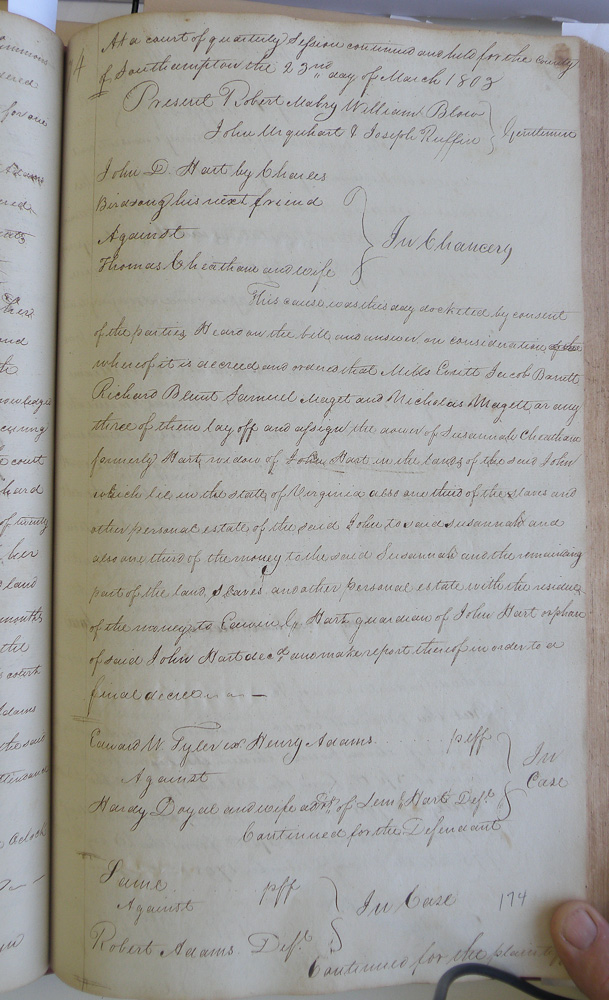 At a court of quarterly Session continued and held for the County
of Southampton the 23rd day of March 1803
Present Robert Mabry William Blow
John Urquhart & Joseph Ruffin } Gentlemen
John D. Hart by Charles
Birdsong his next friend
Against } In Chancery
Thomas Cheatham and wife
This cause was this day docketed by consent
of the parties Heard on the bill and answer on consideration
whereof it is decreed and ordered that Jacob Barrett
Richard Blunt Samuel Maget and Nicholas Magett or any
three of them lay off and assign the dower of Susannah Cheatham
formerly Hart widow of John Hart in the lands of the said John
which lie in the state of Virginia also one third of the slaves and
other personal estate of the said John to said Susannah and
also one third of the money to the said Susannah and the remaining
part of the land, slaves and other personal estate with the residue
of the money to Hart guardian of John Hart orphan
of said John Hart decd. and make report thereof in order to a
final decree
Edward W. Tyler ex Henry Adams plff
Against } In Case
Hardy Doyal and wife of Hart Deft.
Continued for the Defendant
Same plff
Against } In Case 174
Robert Adams Deft.
Continued for the